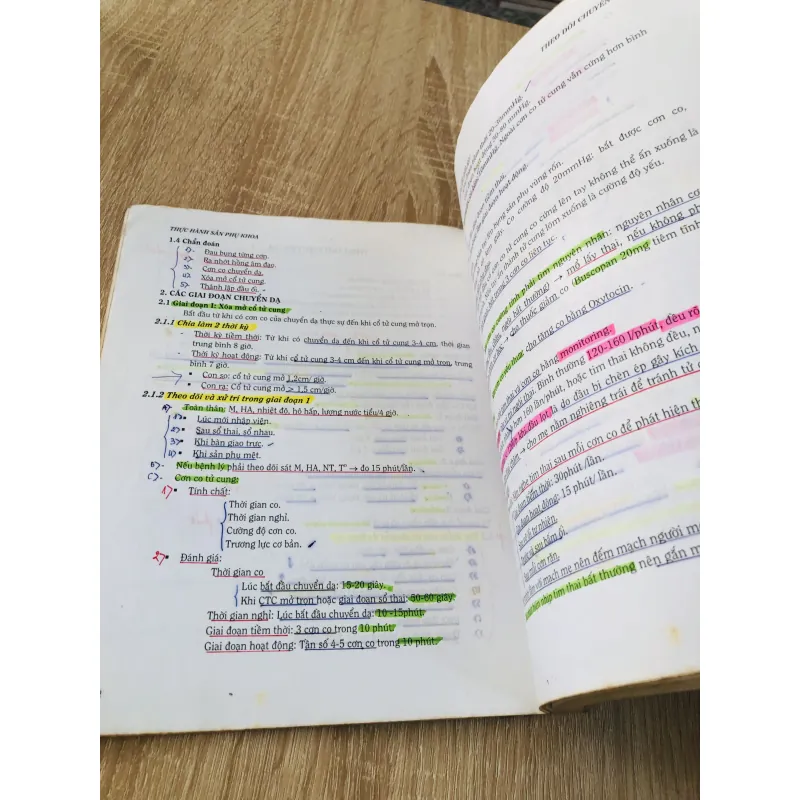 THỰC HÀNH SẢN PHỤ KHOA
1.4 Chẩn đoán
1)- Đau bụng từng cơn.
2)- Ra nhớt hồng âm đạo.
3)- Cơn co chuyển dạ.
4)- Xóa mở cổ tử cung.
5)- Thành lập đầu ối.
2. CÁC GIAI ĐOẠN CHUYỂN DẠ
2.1 Giai đoạn 1: Xóa mở cổ tử cung
Bắt đầu từ khi có cơn co của chuyển dạ thực sự đến khi cổ tử cung mở trọn.
2.1.1 Chia làm 2 thời kỳ
- Thời kỳ tiềm thời: Từ khi có chuyển dạ đến khi cổ tử cung 3-4 cm, thời gian
trung bình 8 giờ.
- Thời kỳ hoạt động: Từ khi cổ tử cung 3-4 cm đến khi cổ tử cung mở trọn, trung
bình 7 giờ.
• Con so: cổ tử cung mở 1,2cm/ giờ.
• Con rạ: Cổ tử cung mở > 1,5 cm/giờ.
2.1.2 Theo dõi và xử trí trong giai đoạn 1
a)- Toàn thân: M, HA, nhiệt độ, hô hấp, lượng nước tiểu/4 giờ.
1)• Lúc mới nhập viện.
2)• Sau sổ thai, sổ nhau.
3)• Khi bàn giao trực.
4)• Khi sản phụ mệt.
b)- Nếu bệnh lý phải theo dõi sát M, HA, NT, T° → đo 15 phút/lần.
c)- Cơn co tử cung:
1)• Tính chất:
Thời gian co.
Thời gian nghỉ.
Cường độ cơn co.
Trương lực cơ bản.
2)• Đánh giá:
Thời gian co
Lúc bắt đầu chuyển dạ: 15-20 giây.
Khi CTC mở trọn hoặc giai đoạn sổ thai: 50-60 giây
Thời gian nghỉ: Lúc bắt đầu chuyển dạ: 10 -15phút.
Giai đoạn tiềm thời: 3 cơn co trong 10 phút.
Giai đoạn hoạt động: Tần số 4-5 cơn co trong 10 phút.
THEO DÕI CHUYỂN
20-20mmHg.
động 50-80 mmHg.
mmHg. Ngoài cơn co tử cung vẫn cứng hơn bình
tiềm thời.
hoạt động.
bụng sản phụ vùng rốn.
kìm giây. Co cường độ 20mmHg: bắt được cơn co,
co tử cung co cứng lên tay không thể ấn xuống là
ấn thành tử cung lõm xuống là cường độ yếu.
3 cơn co liên tục.
phát tìm nguyên nhân: nguyên nhân cơ
bất thường) → mổ lấy thai, nếu không ph
cho thuốc giảm co (Buscopan 20mg tiêm tĩnh
cho tăng co bằng Oxytocin.
cơn co bằng monitoring.
Bình thường 120-160 l/phút, đều rõ
160 lần/phút, hoặc tim thai không đều, n
khi đầu lọt là do đầu bị chèn ép gây kích
→ cho mẹ nằm nghiêng trái để tránh tử c
nghe tim thai sau mỗi cơn co để phát hiện th
tiềm thời: 30phút/lần.
hoạt động: 15 phút/ lần.
ối tự nhiên.
sau bấm ối.
mỗi cơn rặn.
với mạch mẹ nên đếm mạch người m
nhịp tim thai bất thường nên gắn m